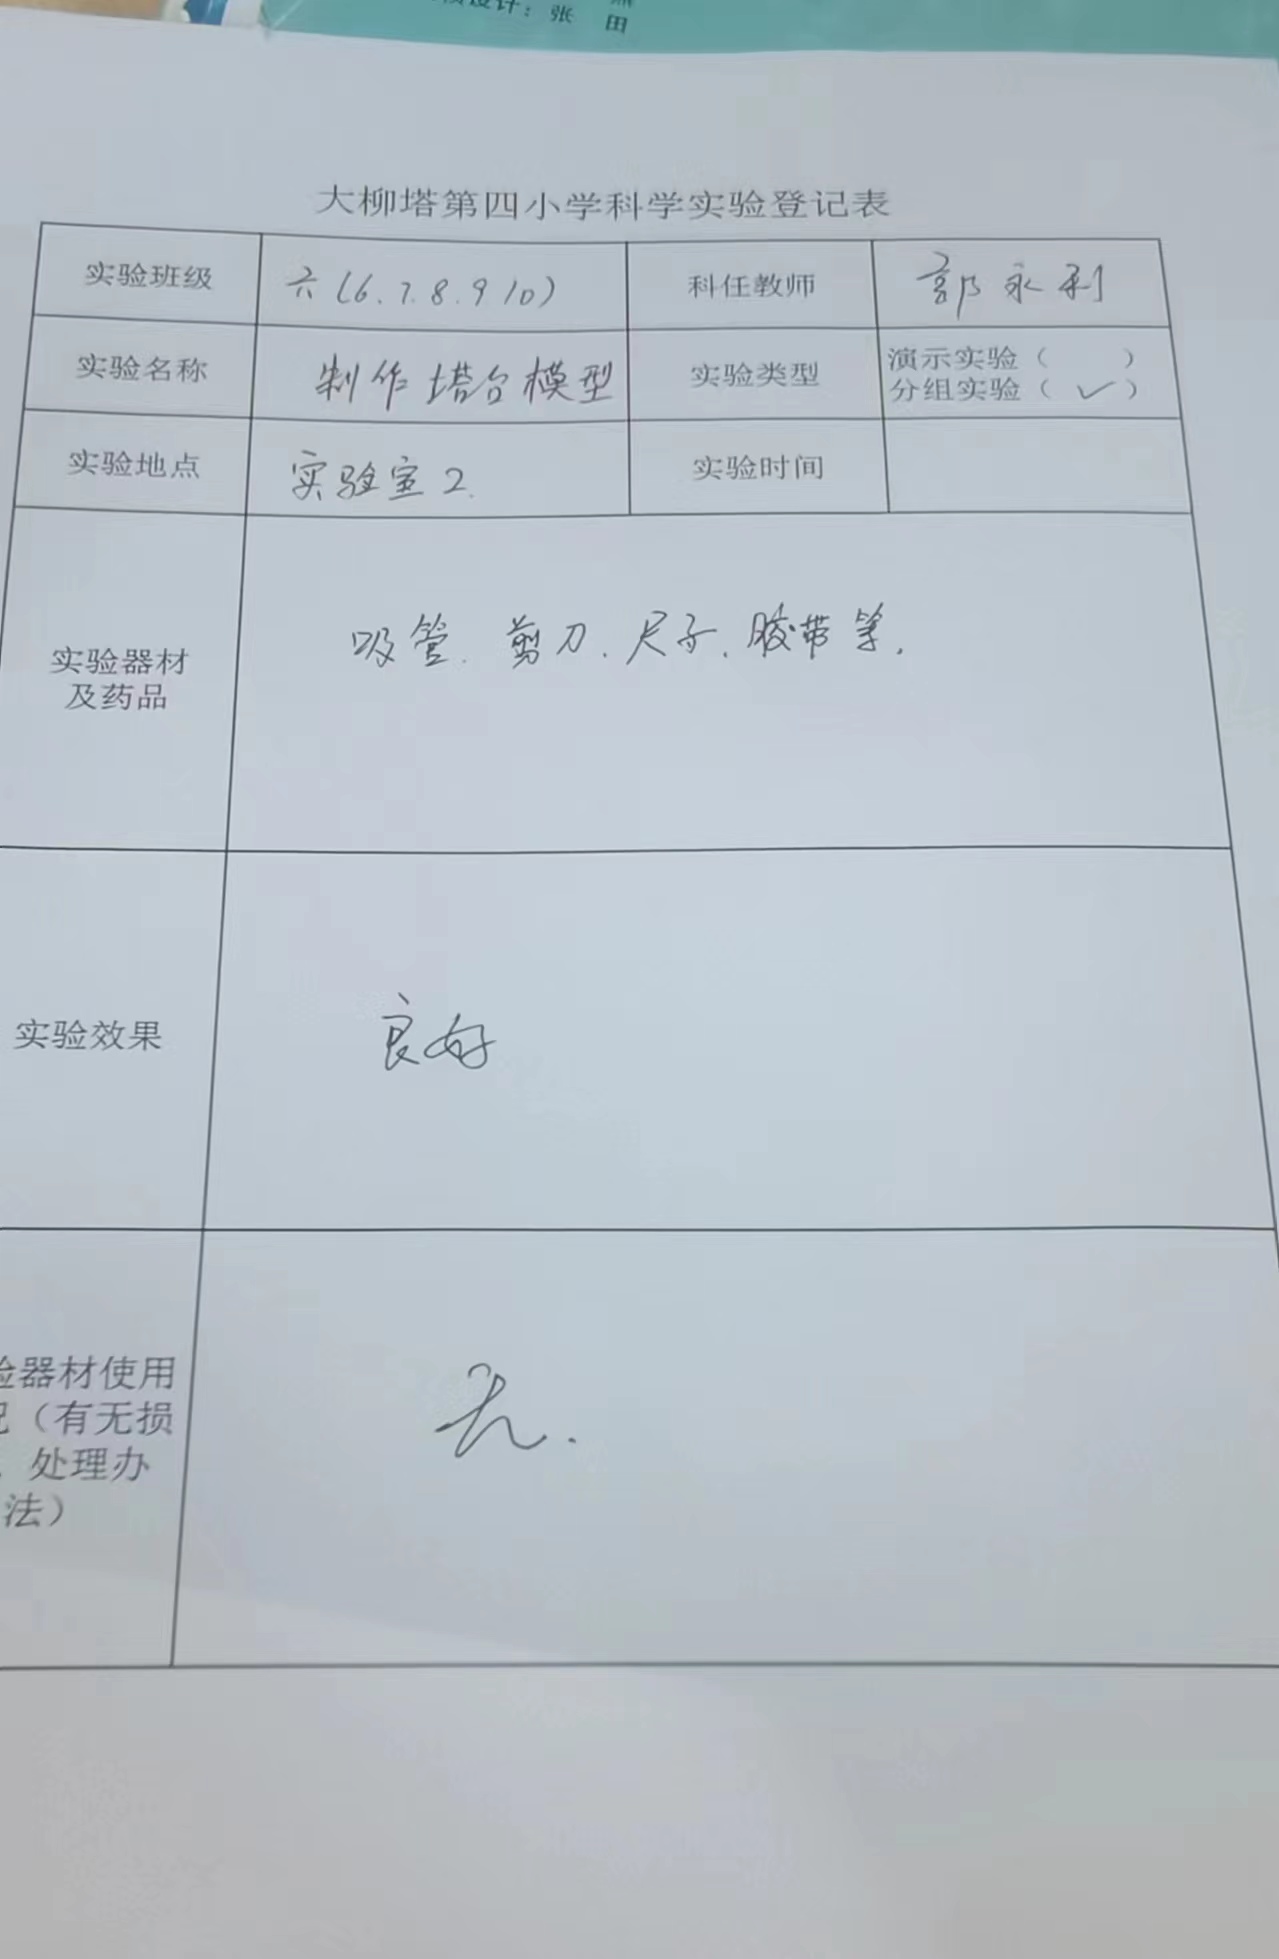 设计：张 田
大柳塔第四小学科学实验登记表
实验班级 六（6.7.8.9 10） 科任教师 郭永利
实验名称 制作塔台模型 实验类型 演示实验（ ）
分组实验（✓）
实验地点 实验室2. 实验时间
实验器材
及药品
吸管. 剪刀. 尺子. 胶带等.
实验效果 良好
验器材使用
况（有无损
处理办
法）
无.